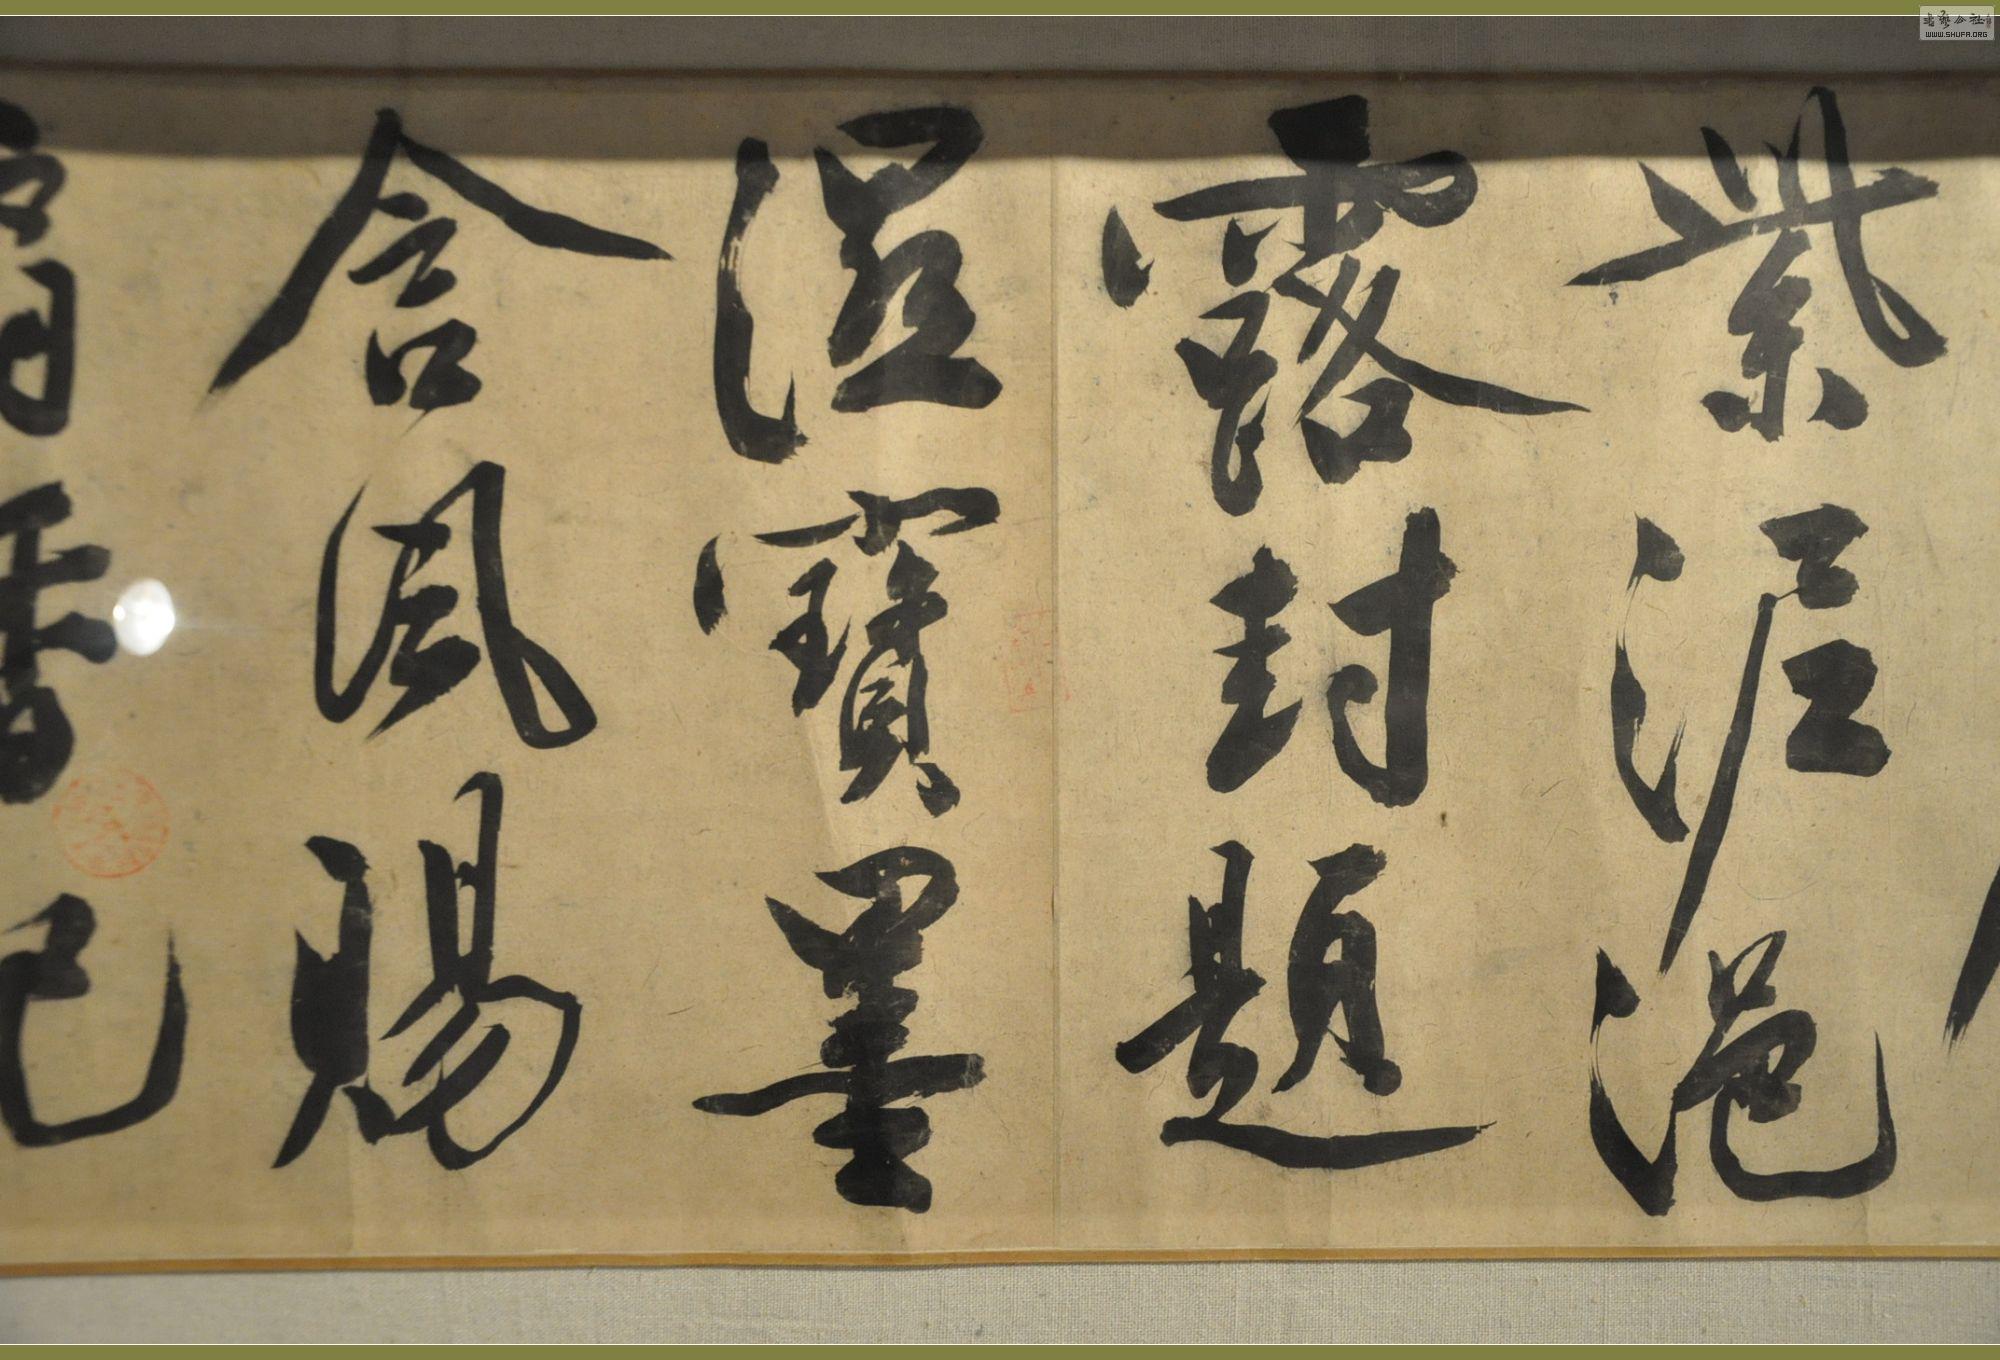 紫泥浥
露封題
湿寶墨
含風賜
香已
書藝公社
WWW.SHUFA.ORG